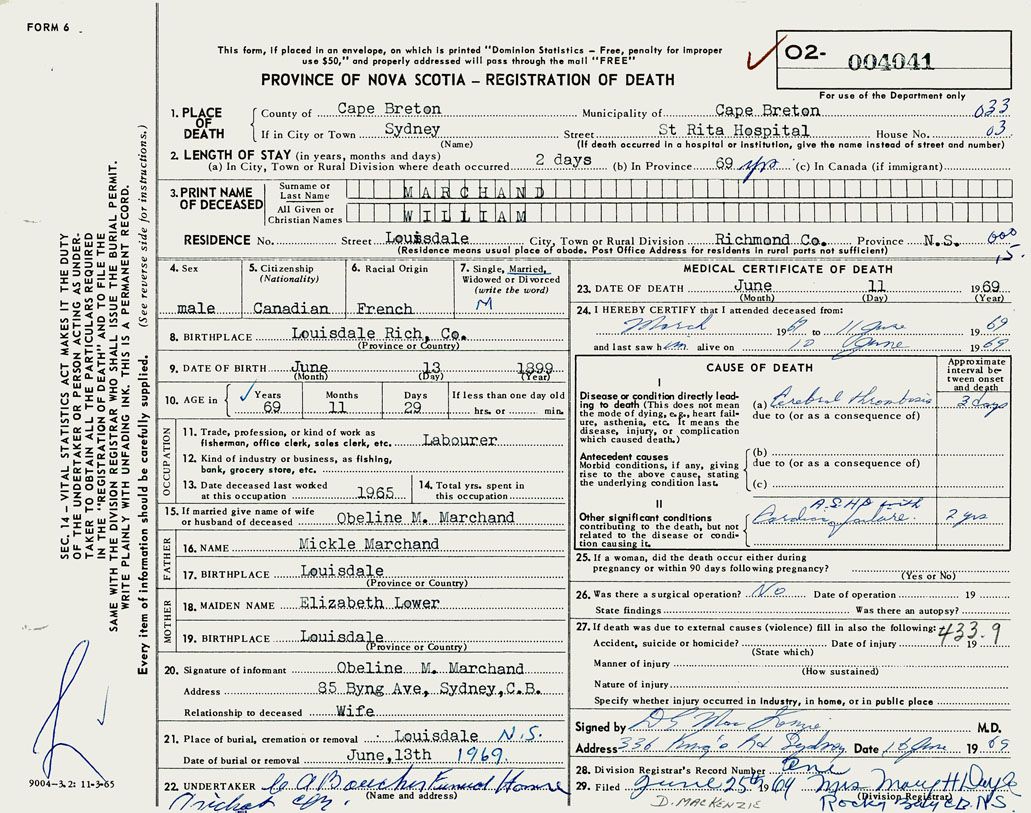 FORM 6
This form, if placed in an envelope, on which is printed "Dominion Statistics – Free, penalty for improper
use $50," and properly addressed will pass through the mail "FREE"
PROVINCE OF NOVA SCOTIA – REGISTRATION OF DEATH
02- 004041
For use of the Department only
1. PLACE OF DEATH
County of Cape Breton Municipality of Cape Breton 033
If in City or Town Sydney Street St Rita Hospital House No. 03
(Name) (If death occurred in a hospital or institution, give the name instead of street and number)
2. LENGTH OF STAY (in years, months and days)
(a) In City, Town or Rural Division where death occurred 2 days (b) In Province 69 yrs (c) In Canada (if immigrant)
3. PRINT NAME OF DECEASED
Surname or Last Name MARCHAND
All Given or Christian Names WILLIAM
RESIDENCE No. Street Louisdale City, Town or Rural Division Richmond Co. Province N.S. 000
(Residence means usual place of abode. Post Office Address for residents in rural parts not sufficient) 15.
4. Sex male
5. Citizenship (Nationality) Canadian
6. Racial Origin French
7. Single, Married, Widowed or Divorced (write the word) M
8. BIRTHPLACE Louisdale Rich, Co.
(Province or Country)
9. DATE OF BIRTH June 13 1899
(Month) (Day) (Year)
10. AGE in Years 69 Months 11 Days 29 If less than one day old hrs. or min.
OCCUPATION
11. Trade, profession, or kind of work as fisherman, office clerk, sales clerk, etc. Labourer
12. Kind of industry or business, as fishing, bank, grocery store, etc.
13. Date deceased last worked at this occupation 1965
14. Total yrs. spent in this occupation
15. If married give name of wife or husband of deceased Obeline M. Marchand
FATHER
16. NAME Mickle Marchand
17. BIRTHPLACE Louisdale
(Province or Country)
MOTHER
18. MAIDEN NAME Elizabeth Lower
19. BIRTHPLACE Louisdale
(Province or Country)
20. Signature of informant Obeline M. Marchand
Address 85 Byng Ave, Sydney, C.B.
Relationship to deceased Wife
21. Place of burial, cremation or removal Louisdale N.S.
Date of burial or removal June, 13th 1969.
22. UNDERTAKER C A Boucher Funeral Home
(Name and address)
MEDICAL CERTIFICATE OF DEATH
23. DATE OF DEATH June 11 1969
(Month) (Day) (Year)
24. I HEREBY CERTIFY that I attended deceased from:
March 1969 to 11 June 1969
and last saw him alive on 10 June 1969
CAUSE OF DEATH
Approximate interval between onset and death
I
Disease or condition directly leading to death (This does not mean the mode of dying, e.g., heart failure, asthenia, etc. It means the disease, injury, or complication which caused death.)
(a) Cerebral thrombosis 3 days
due to (or as a consequence of)
Antecedent causes
Morbid conditions, if any, giving rise to the above cause, stating the underlying condition last.
(b)
due to (or as a consequence of)
(c)
II
Other significant conditions contributing to the death, but not related to the disease or condition causing it.
A.S.H.D with
Cardiac failure. 2 yrs
25. If a woman, did the death occur either during pregnancy or within 90 days following pregnancy?
(Yes or No)
26. Was there a surgical operation? No Date of operation 19
State findings Was there an autopsy?
27. If death was due to external causes (violence) fill in also the following: 433.9
Accident, suicide or homicide? Date of injury 19
(State which)
Manner of injury
(How sustained)
Nature of injury
Specify whether injury occurred in industry, in home, or in public place
Signed by M.D.
Address 336 King's Rd Sydney Date June 1969
28. Division Registrar's Record Number
29. Filed June 25th 1969 Mrs
(Division Registrar)
D. MACKENZIE Rocky Bay C.B. N.S
SEC. 14 – VITAL STATISTICS ACT MAKES IT THE DUTY
OF THE UNDERTAKER OR PERSON ACTING AS UNDER-
TAKER TO OBTAIN ALL THE PARTICULARS REQUIRED
IN THE "REGISTRATION OF DEATH" AND TO FILE THE
SAME WITH THE DIVISION REGISTRAR WHO SHALL ISSUE THE BURIAL PERMIT.
WRITE PLAINLY WITH UNFADING INK. THIS IS A PERMANENT RECORD.
Every item of information should be carefully supplied. (See reverse side for instructions.)
9004-3.2: 11-3-65